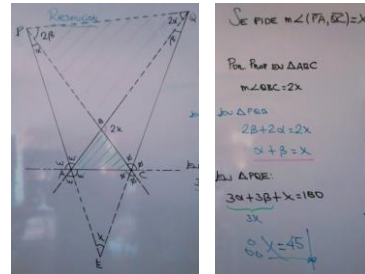 Resolución
P
Q
2β
α
2α
β
B
2x
w
w
w
A
C
x
E
SE PIDE m∠(PA,QC)=X
POR PROP EN △ABC
m∠QBC=2X
EN △PBQ
2β+2α=2X
α+β=X
EN △PQE:
3α+3β+X=180
3X
X=45